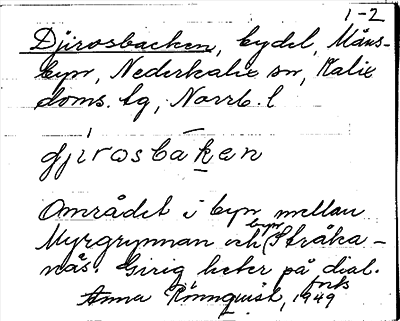 1-2
Djirosbacken, bydel, Måns-
byn, Nederkalix sn, Kalix
doms. tg, Norrb. l
gjirosbaken
Området i byn mellan
Myrgrynnan och byn Stråka-
näs. Girig heter på dial.
Anna Rönnquist, forts 1949